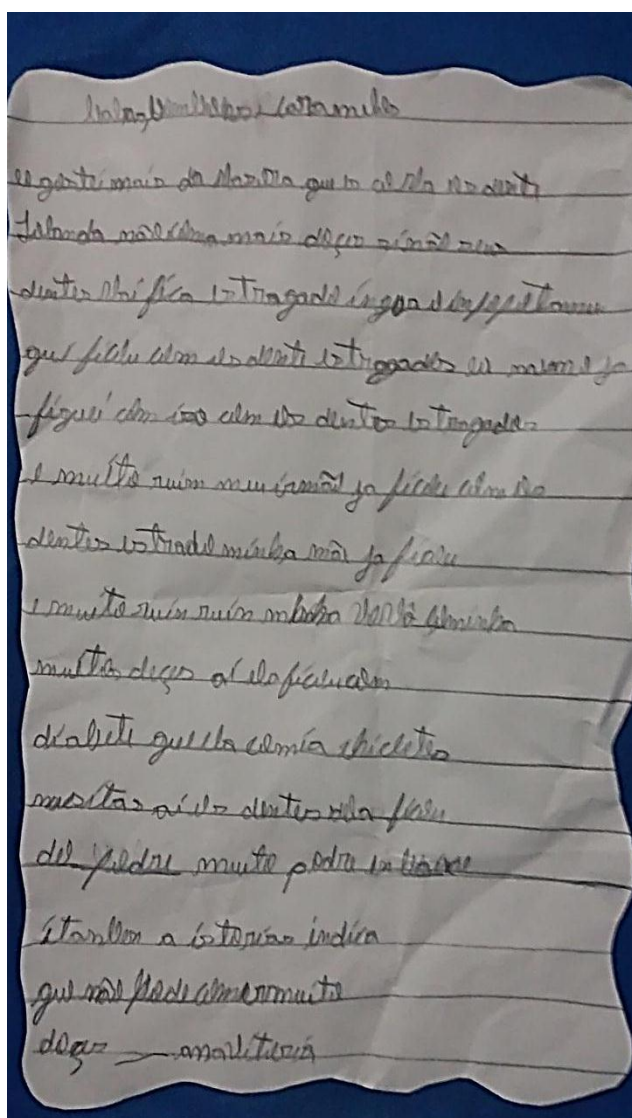 balas, bombons, caramelos
eu gostei mais da
falando não coma mais doçes sinão seus
dentes vai fica estragado
que ficou com os denti estragados eu mesmo ja
fiquei com iso com os dentes estragados
e muito ruim meu irmão ja ficou com os
dentes estrado minha mãe ja ficou
e muito ruin ruin minha vovó cominha
muitos doçes ai ela ficou com
diabete que ela comia chicletes
muitas ai os dentes dela ficou
del podre muito podre
itanben a istorias indica
que não pode comer muito
doçes